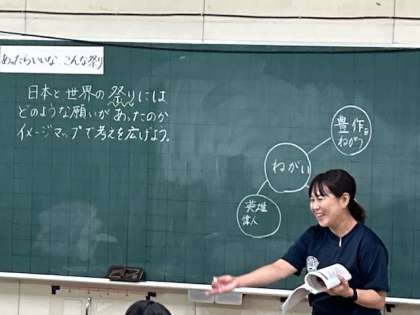 あったらいいな、こんな祭り
日本と世界の祭りには
どのような願いがあったのか
イメージマップで考えを広げよう。
豊作を
ねがう
ねがい
英雄
偉人